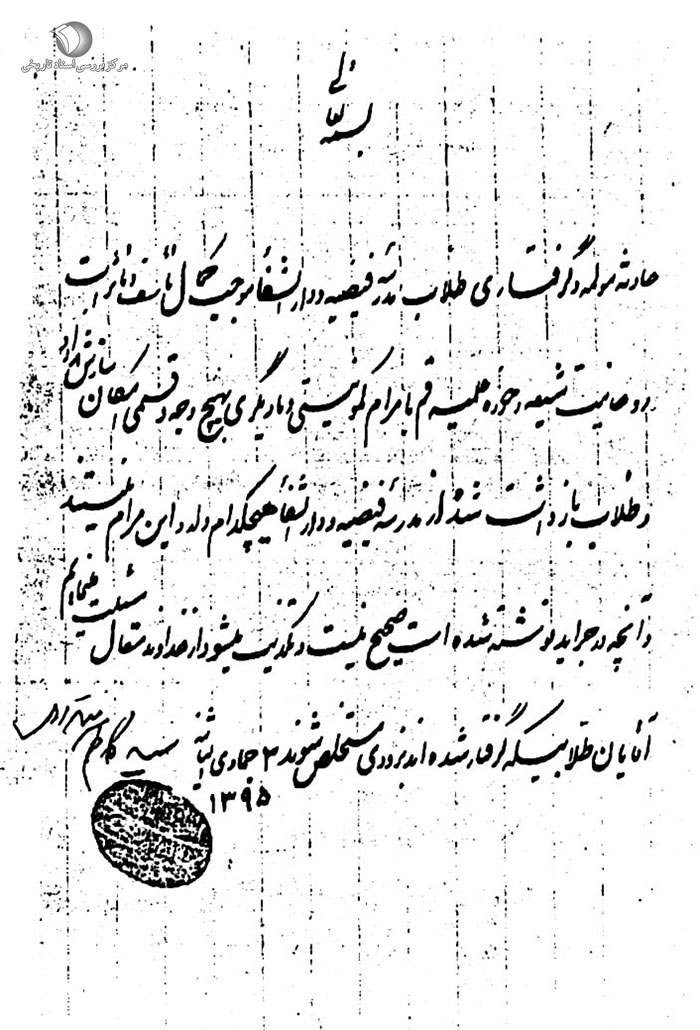 مرکز بررسی اسناد تاریخی
بسمه تعالی
حادثه مولمه و گرفتاری طلاب مدرسه فیضیه و دارالشفأ موجب کمال تأسف و تأثر است
روحانیت شیعه و حوزه علمیه قم با مرام کمونیستی و مادیگری بهیچ وجه و قسمی امکان سازش ندارد
و طلاب بازداشت شده از مدرسه فیضیه و دارالشفأ هیچکدام وارد این مرام نیستند
و آنچه در جراید نوشته شده است صحیح نیست و تکذیب میشود از خداوند متعال مسئلت مینمایم
آقایان طلابیکه گرفتار شده اند بزودی مستخلص شوند ۳ جمادی الثانیه
۱۳۹۵
سید کاظم